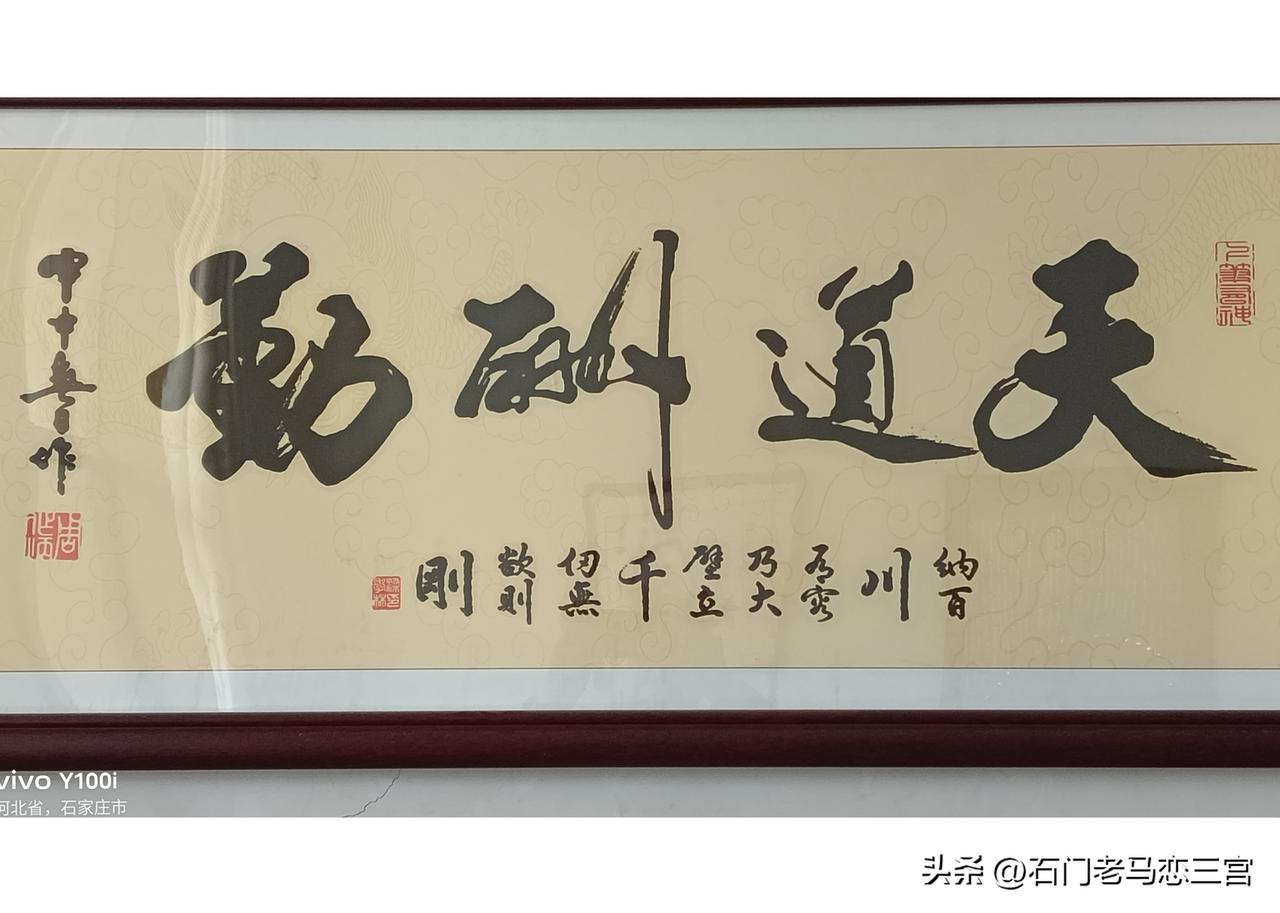 天道酬勤
納百川有容乃大壁立千仞無欲則剛
vivo Y100i
河北省，石家庄市
头条 @石门老马恋三宫